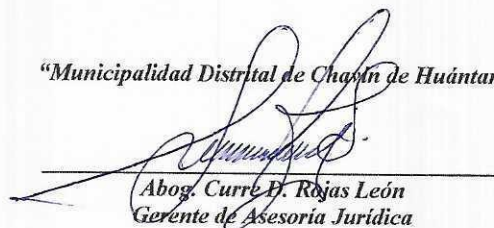 “Municipalidad Distrital de Chavín de Huántar
Abog. Curre D. Rojas León
Gerente de Asesoría Jurídica